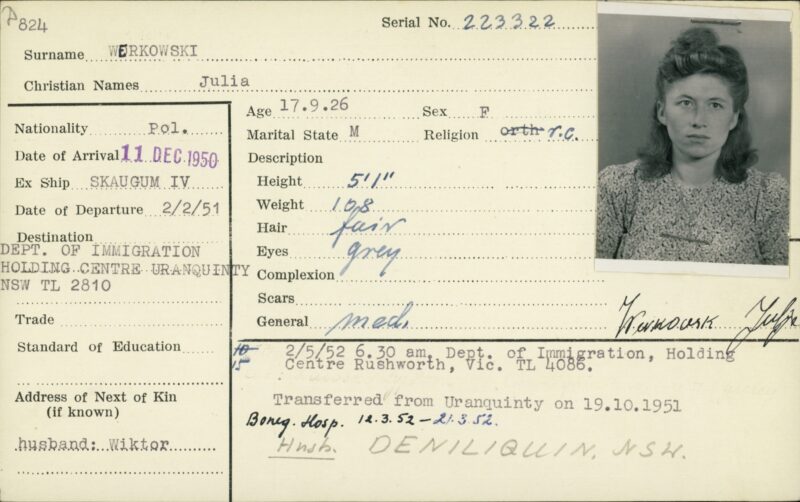 A824
Serial No. 223322
Surname WERKOWSKI
Christian Names Julia
Nationality Pol.
Date of Arrival 11 DEC 1950
Ex Ship SKAUGUM IV
Date of Departure 2/2/51
Destination
DEPT. OF IMMIGRATION
HOLDING CENTRE URANQUINTY
NSW TL 2810
Trade
Standard of Education
Address of Next of Kin
(if known)
husband: Wiktor
Age 17.9.26 Sex F
Marital State M Religion orth r.c.
Description
Height 5'1"
Weight 108
Hair fair
Eyes grey
Complexion
Scars
General med.
10/15
2/5/52 6.30 am. Dept. of Immigration, Holding
Centre Rushworth, Vic. TL 4086.
Transferred from Uranquinty on 19.10.1951
Boneg. Hosp. 12.3.52 – 21.3.52.
Husb. DENILIQUIN. NSW.